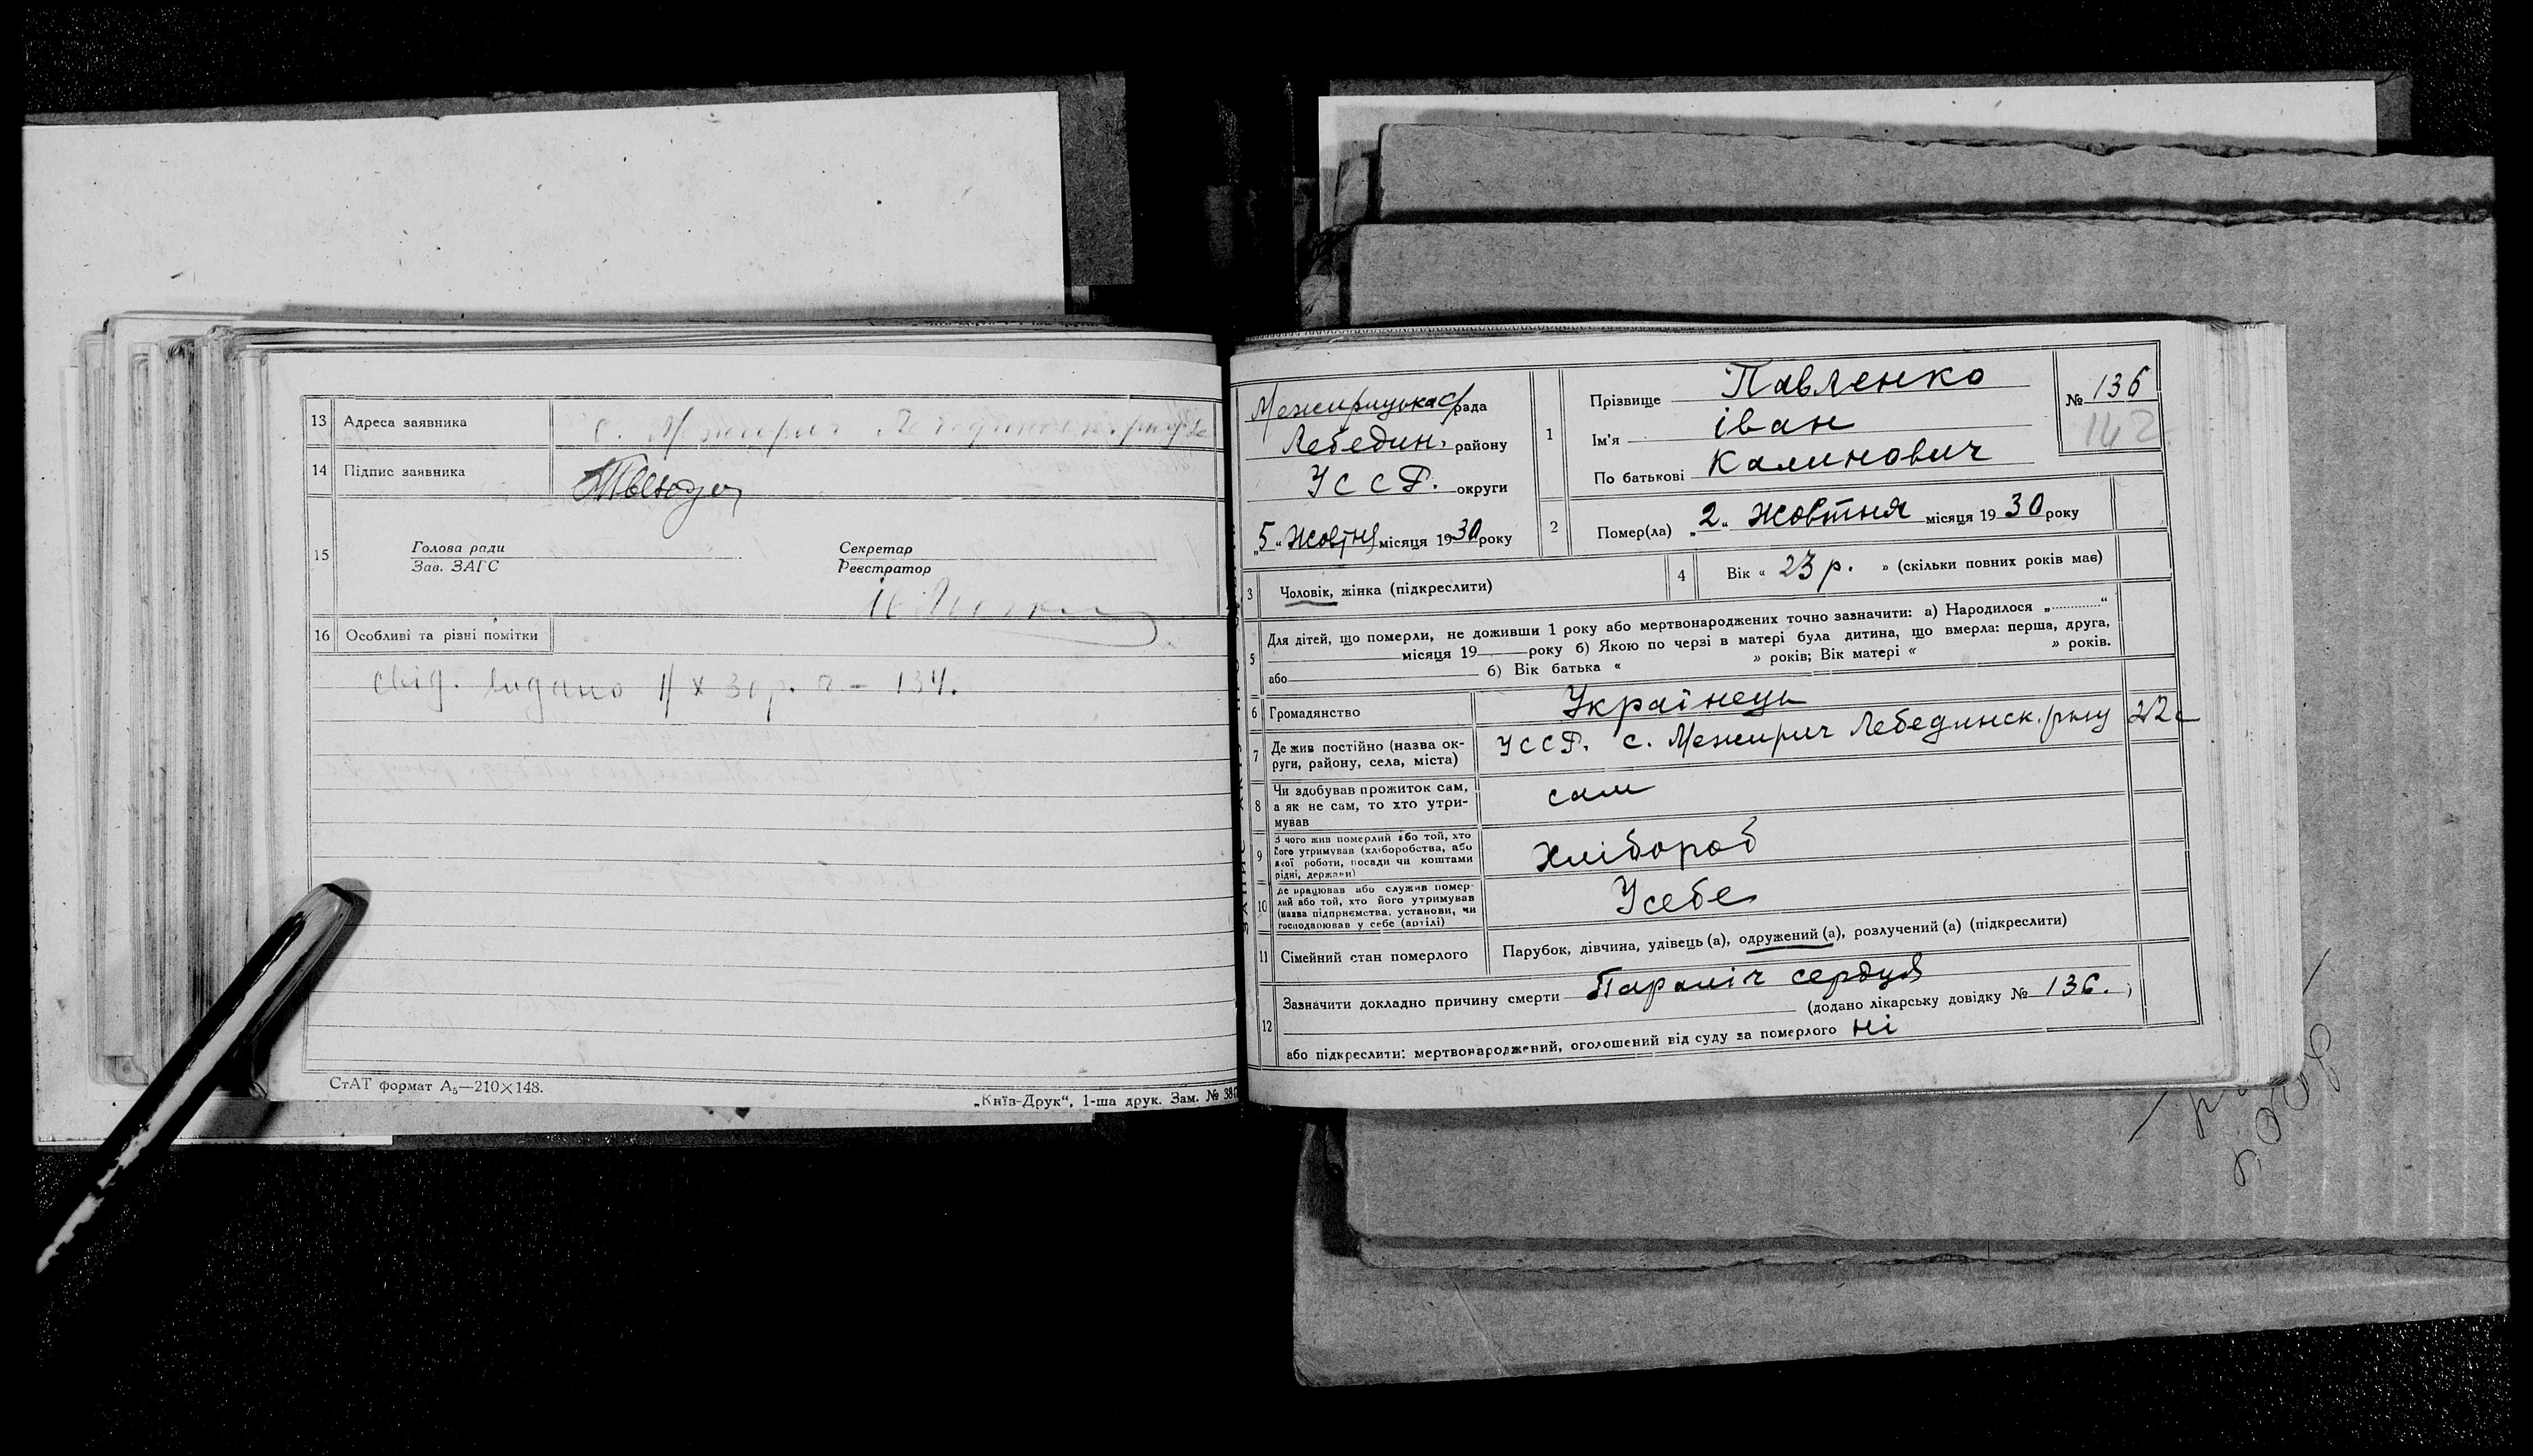 13 Адреса заявника с. Межирич
14 Підпис заявника
15 Голова ради Секретар
Зав. ЗАГС Реєстратор
16 Особливі та різні помітки
свід. видано 1/X 30 р. № - 134.
СтАТ формат А₅—210×148.
„Київ-Друк“, 1-ша друк. Зам. №
Межирицька с/рада
Лебедин. району
УССР. округи
„5“ Жовтня місяця 1930 року
1 Прізвище Павленко
Ім'я іван
По батькові Калинович
№ 136
142
2 Помер(ла) „2“ Жовтня місяця 1930 року
3 Чоловік, жінка (підкреслити)
4 Вік « 23 р. » (скільки повних років має)
5 Для дітей, що померли, не доживши 1 року або мертвонароджених точно зазначити: а) Народилося „............“
місяця 19 року б) Якою по черзі в матері була дитина, що вмерла: перша, друга,
або б) Вік батька « » років; Вік матері « » років.
6 Громадянство Українець
7 Де жив постійно (назва ок-
руги, району, села, міста) УССР. с. Межирич Лебединск. р-ну
8 Чи здобував прожиток сам,
а як не сам, то хто утри-
мував сам
9 З чого жив померлий або той, хто
його утримував (хліборобства, або
якої роботи, посади чи коштами
рідні, держави) Хлібороб
10 Де працював або служив помер-
лий або той, хто його утримував
(назва підприємства, установи, чи
господарював у себе (артілі) У себе
11 Сімейний стан померлого Парубок, дівчина, удівець (а), одружений (а), розлучений (а) (підкреслити)
12 Зазначити докладно причину смерти Параліч сердця
(додано лікарську довідку № 136. ;
або підкреслити: мертвонароджений, оголошений від суду за померлого ні